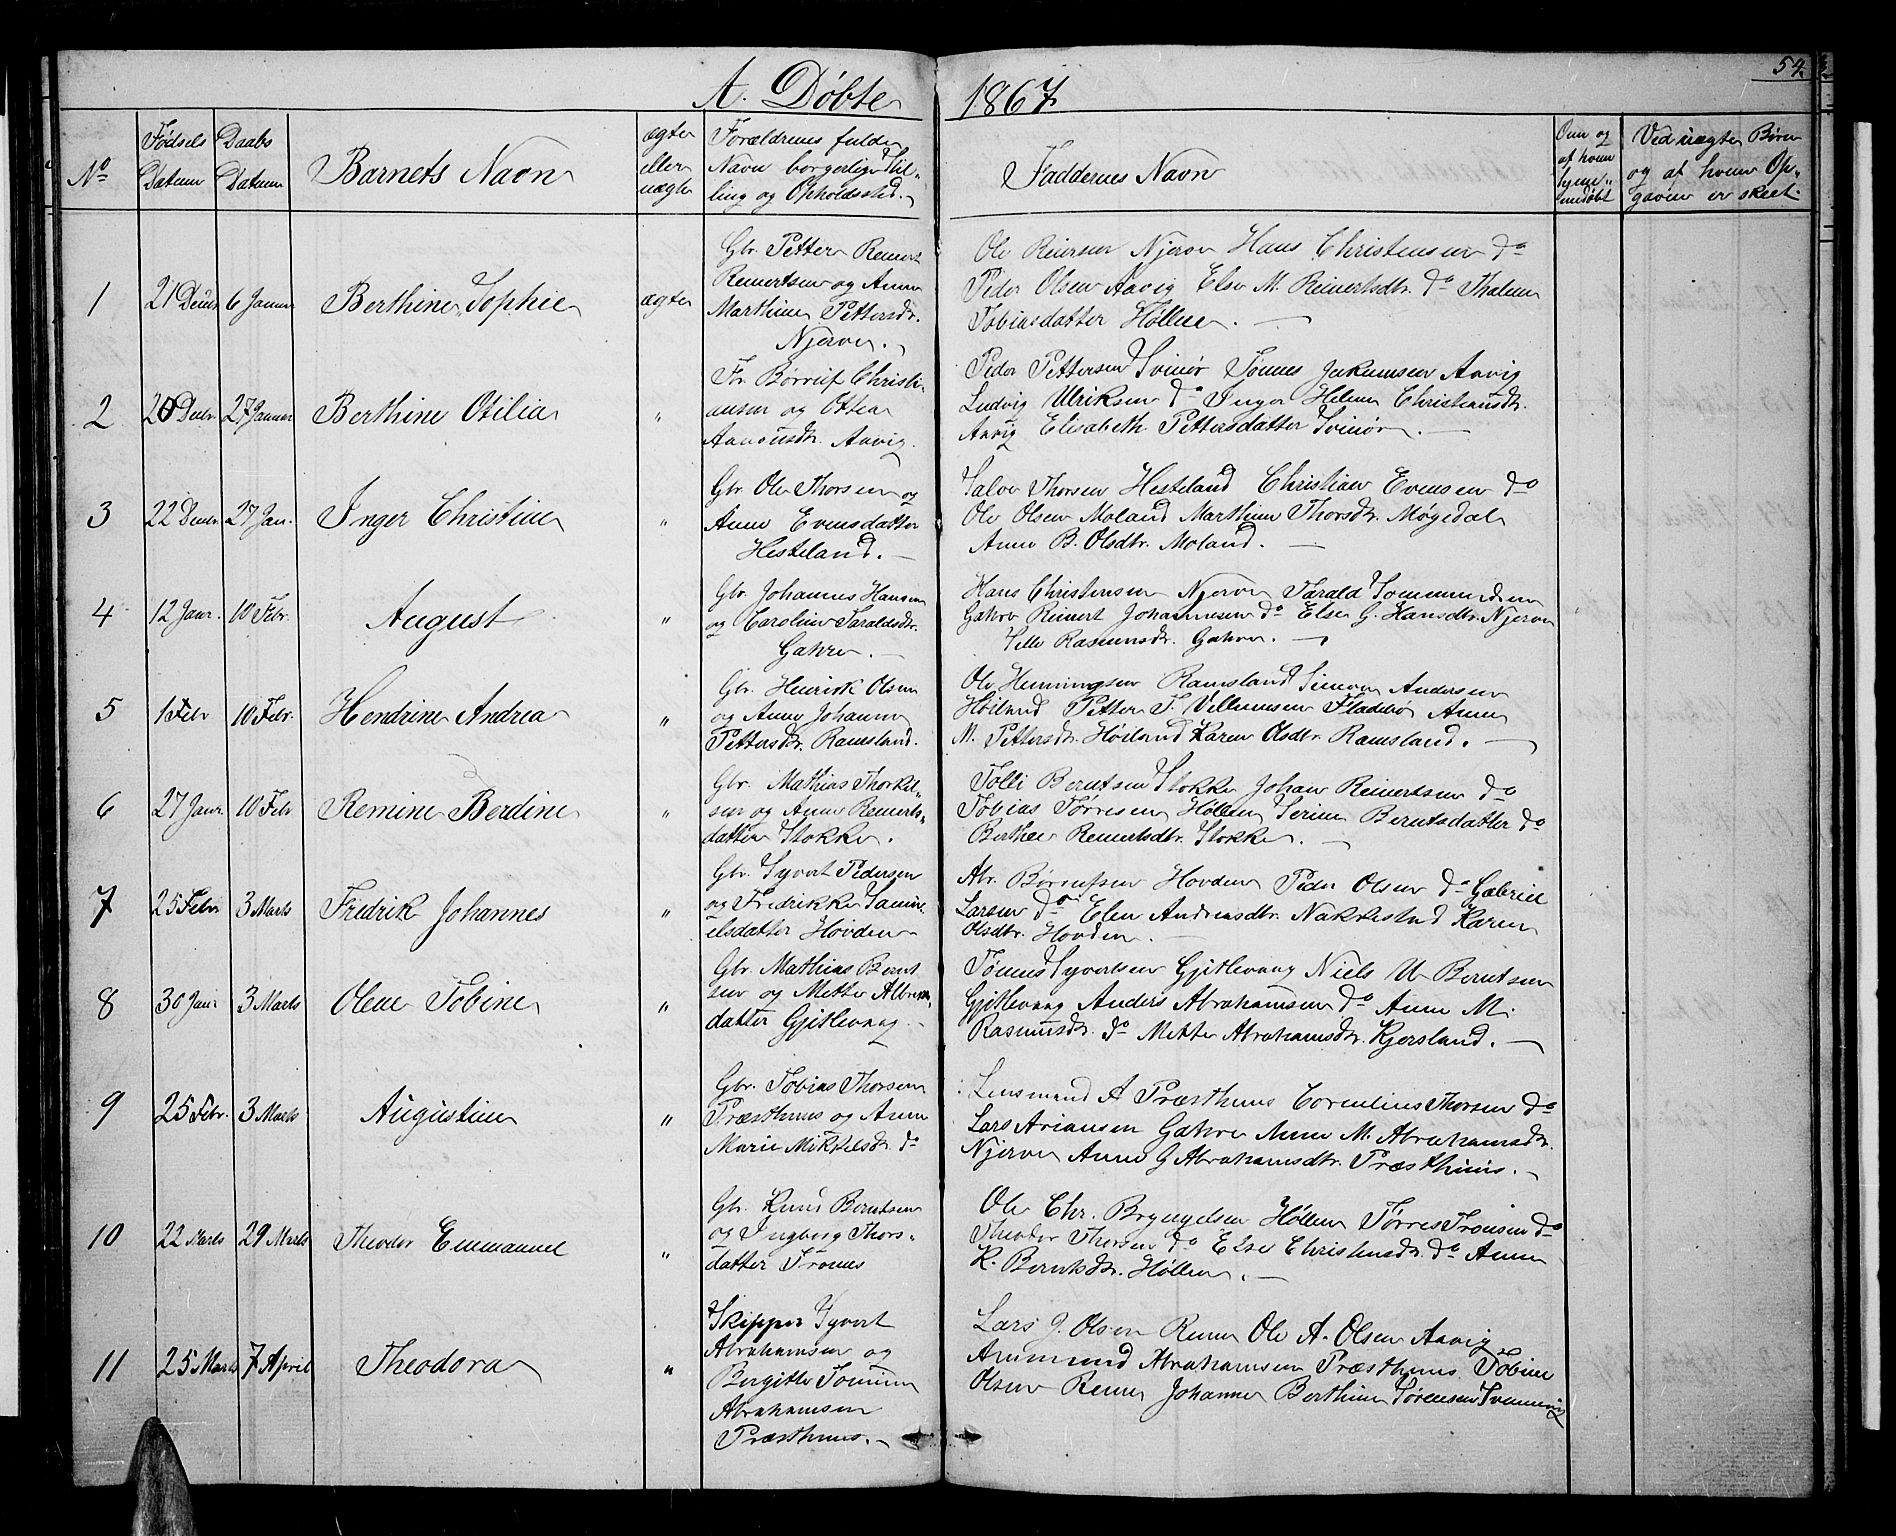 54.
A. Døbte 1867
No
Fødsels Datum
Daabs Datum
Barnets Navn
ægte eller uægte
Forældrenes fulde
Navn borgerlige Stil-
ling og Opholdssted.
Faddernes Navn
Om og af hvem hjemmedøbt
Ved uægte Børn
og af hvem Op-
gaven er skeet.
1 21 Decbr 6 Januar Berthine Sophie ægte
Gbr. Petter Reinert
Reinertsen og Anne
Marthine Pettersdtr.
Njerve.
Ole Reiersen Njerve Hans Christensen do
Peder Olsen Aavig Else M. Reinertsdtr. do Thalene
Tobiasdatter Høllen.
2 20 Decbr 27 Januar Berthine Otilia "
Fr. Børruf Christi-
ansen og Ottea
Aanensdtr. Aavig.
Peder Pettersen Svinør Tønnes Jakumsen Aavig
Ludvig Ulriksen do Inger Helene Christiansdtr.
Aavig Elisabeth Pettersdatter Svinør.
3 22 Decbr 27 Jan. Inger Christine "
Gbr. Ole Thorsen og
Anne Evensdatter
Hesteland.
Salve Thorsen Hesteland Christian Evensen do
Ole Olsen Moland Marthine Thorsdtr. Møgedal
Anne B. Olsdtr. Moland.
4 12 Janr. 10 Febr. August "
Gbr. Johannes Hansen
og Caroline Taraldsdtr.
Gahre.
Hans Christensen Njerve Tarald Tommundsen
Gahre Reinert Johannesen do Else G. Hansdtr. Njerve
Sille Rasmusdtr. Gahre.
5 1 Febr 10 Febr. Hendrine Andrea "
Gbr. Henrik Olsen
og Anne Johanne
Pettersdtr. Ramsland.
Ole Henningsen Ramsland Simon Andersen
Høiland Petter T. Villumsen Fladebø Anne
M. Pettersdtr. Høiland Karen Olsdtr. Ramsland.
6 27 Janr. 10 Febr Remine Berdine "
Gbr. Mathias Thorkel-
sen og Anne Reinerts-
datter Stokke.
Tolli Berntsen Stokke Johan Reinertsen do
Tobias Tørresen Høllen Serine Berntsdatter do
Berthe Reinertsdtr. Stokke.
7 25 Febr 3 Marts Fredrik Johannes "
Gbr. Syvert Pedersen
og Fredrikke Samu-
elsdatter Hovden
Abr. Børrufsen Hovden Peder Olsen do Gabriel
Larsen do Elen Andreasdtr. Nakkestad Karen
Olsdtr. Hovden.
8 30 Janr 3 Marts Olene Tobine "
Gbr. Mathias Bernt
sen og Mette Abrams-
datter Gjitlevaag.
Tønnes Syvertsen Gjitlevaag Niels U Berntsen
Gjitlevaag Anders Abrahamsen do Anne M.
Rasmusdtr. do Mette Abrahamsdtr. Kjersland.
9 25 Febr. 3 Marts Augustine "
Gbr. Tobias Thorsen
Præsthuus og Anne
Marie Mikkelsdtr. do
Lensmand A Præsthuus Cornelius Thorsen do
Lars Ariansen Gahre Anne M. Abrahamsdtr.
Njerve Anne G Abrahamsdtr. Præsthuus.
10 22 Marts 29 Marts Theodor Emmanuel "
Gbr. Knud Berntsen
og Ingborg Thors-
datter Tronus
Ole Chr. Bryngelsen Høllen Tørres Tronsen do
Theodor Thorsen do Else Christensdtr. do Anne
K. Berntsdtr. Høllen.
11 25 Marts 7 April Theodora "
Skipper Syvert
Abrahamsen og
Birgitte Tomine
Abrahamsen
Præsthuus.
Lars J. Olsen Remer Ole A. Olsen Aavig
Ammund Abrahamsen Præsthuus Tobine
Olsen Remer Johanne Berthine Sørensen Svennevig